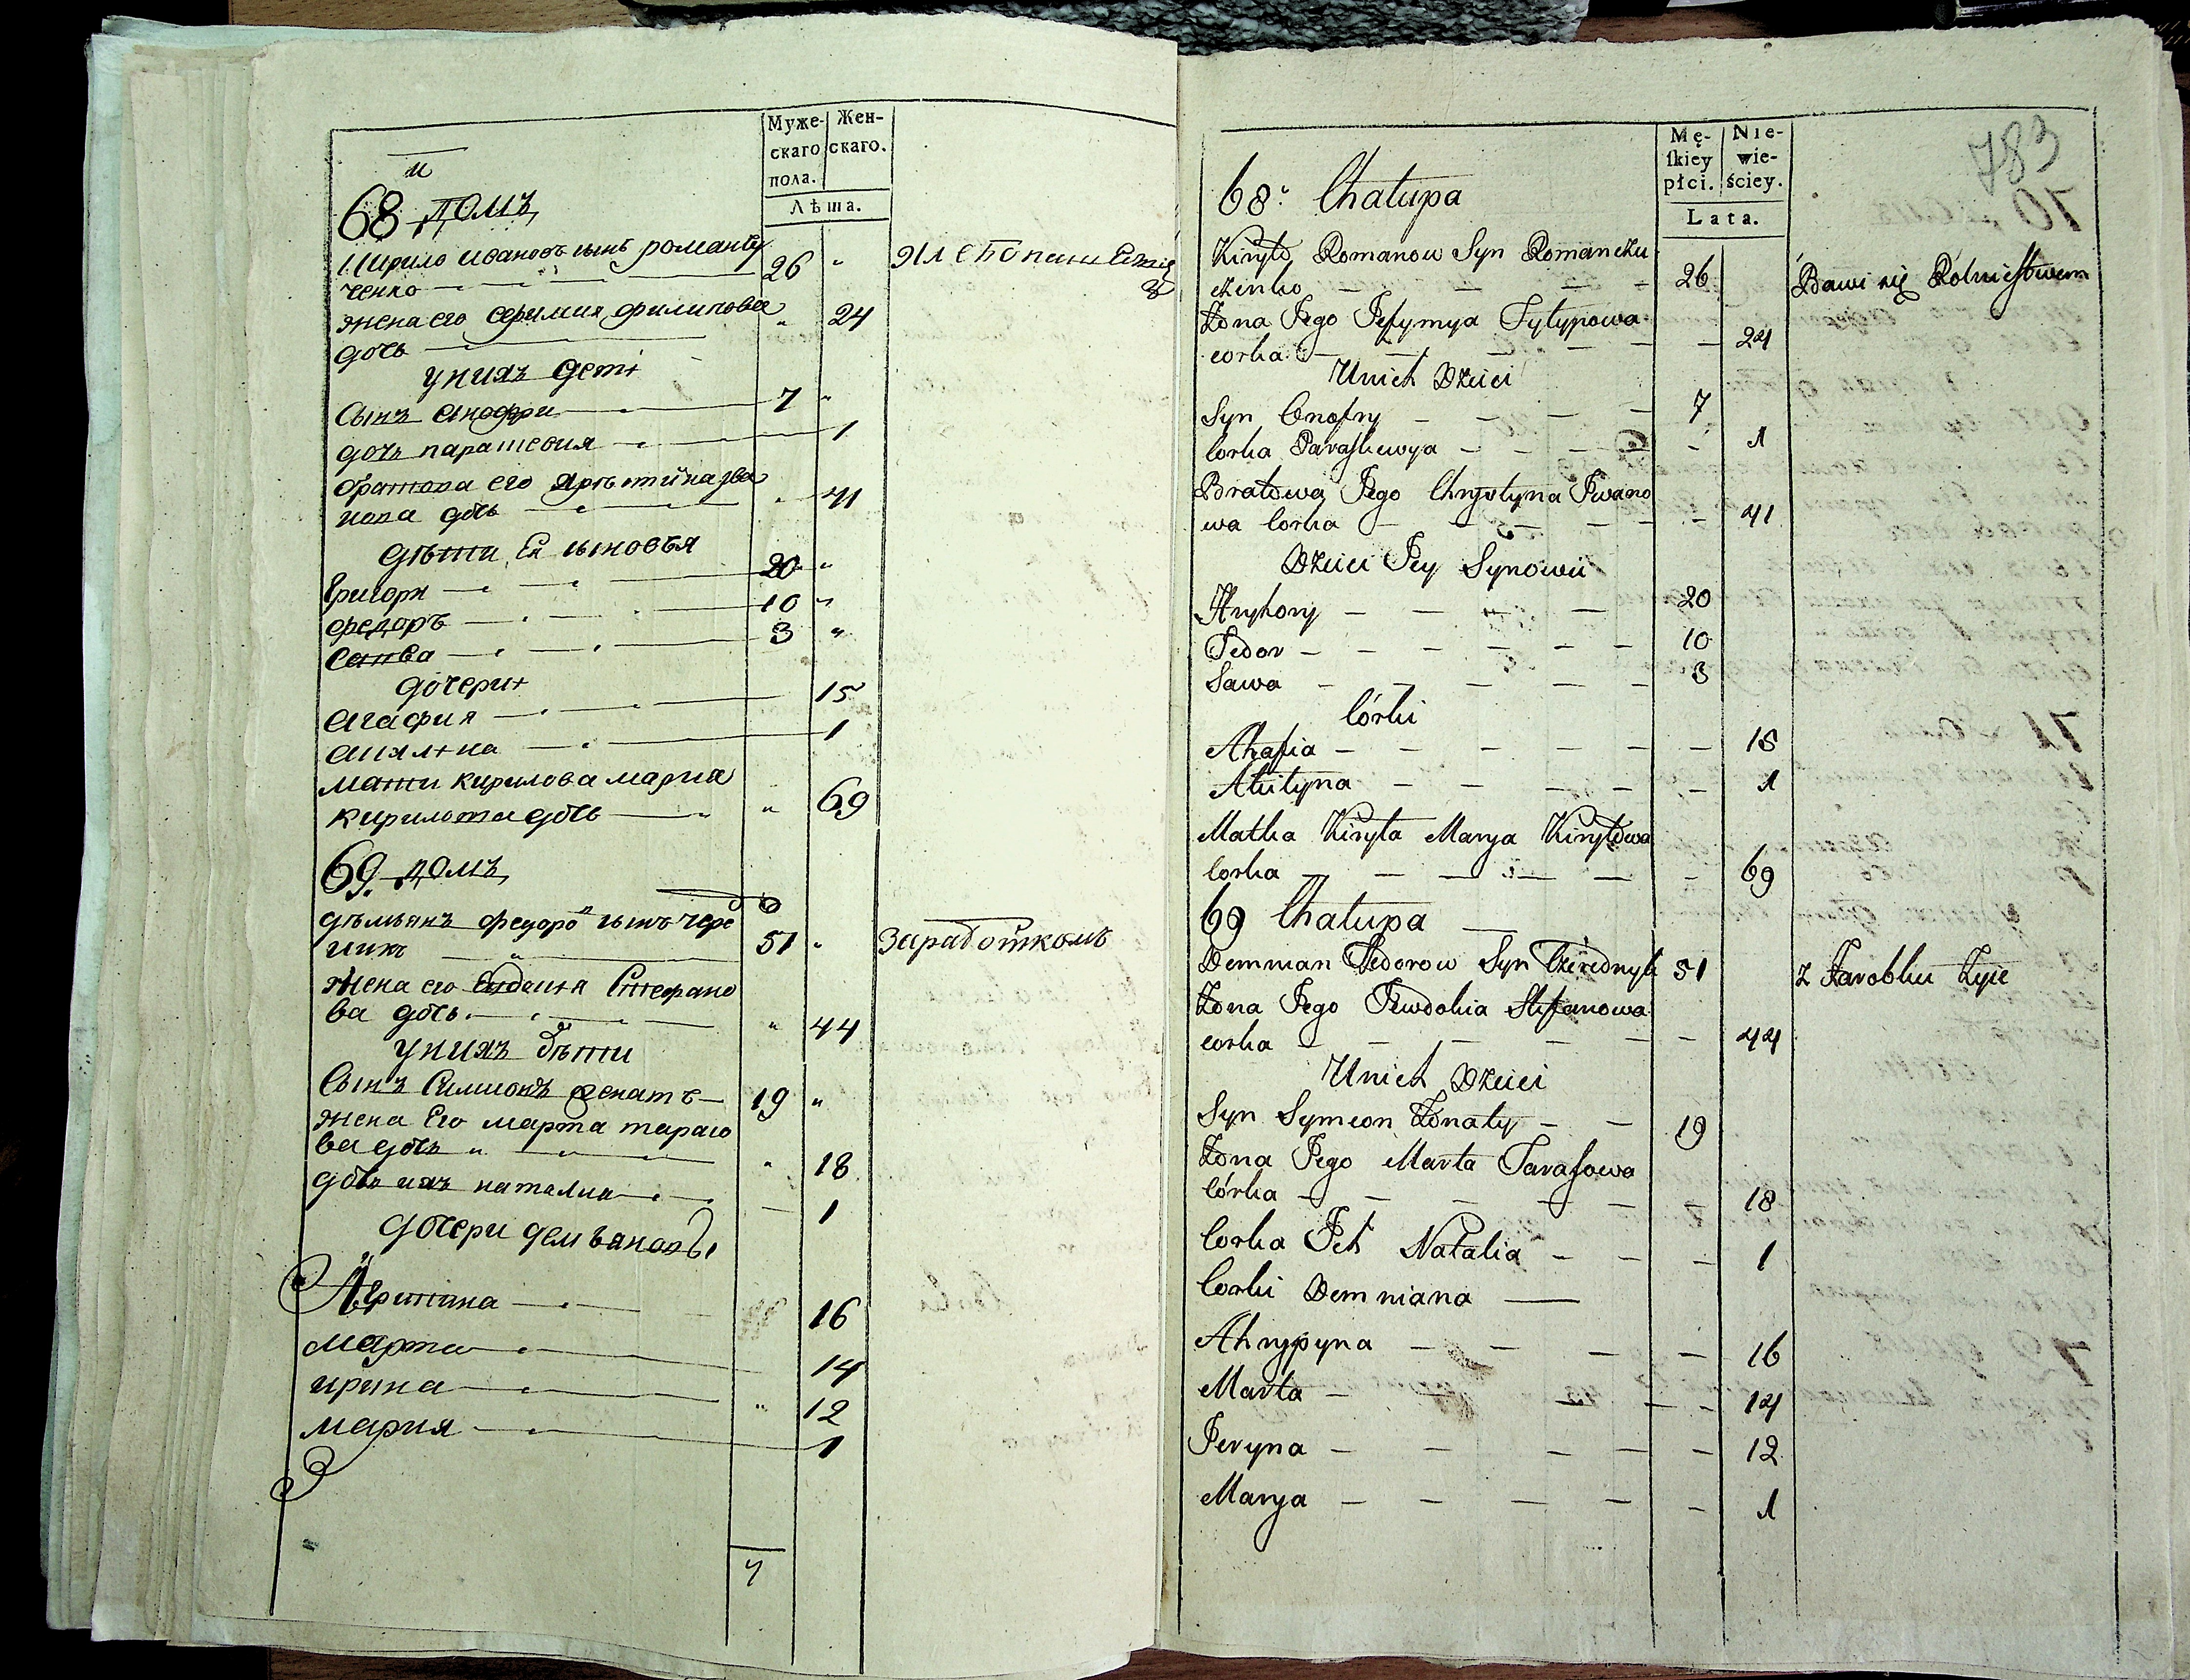 Муже-
скаго
пола.
Жен-
скаго.
Лѣта.
68 домъ
Кирило Ивановъ сынъ романъчу
ченко 26
жена его Ефимия филипова
дочь 24
у нихъ дети
Сынъ Анофри 7
дочь парашевия 1
братова его
нова дочь 41
дѣти Ея сыновья
Григори 20
федоръ 10
Савва 3
дочери
Агафия 15
Акилина 1
мати кирилова мария
кирилова дочь 69
69. домъ
дѣмьянъ федоровъ сынъ чере
никъ 51 заработкомъ
жена его Евдокия Стефано
ва дочь 44
у нихъ дѣти
Сынъ Симионъ женатъ 19
жена Его марта тарасо
ва дочь 18
дочь ихъ наталия 1
дочери демьяновы
Агрипина 16
марта 14
ирина 12
мария 1
7
783
Mę-
ſkiey
płci.
Nie-
wie-
ściey.
Lata.
68. Chałupa
Kiryło Romanow Syn Romanczu
czenko 26 Bawi się Rolnictwem
Żona Jego Jefymya Fyłypowa
corka 24
U nich Dzieci
Syn Onofry 7
Corka Paraſkewya 1
Bratowa Jego Chrystyna Iwano
wa Corka 41
Dzieci Jey Synowii
Hryhory 20
Fedor 10
Sawa 3
Córki
Ahafia 15
Akilyna 1
Matka Kiryła Marya Kiryłowa
Corka 69
69 Chałupa
Demnian Fedorow Syn Czerednyk 51 z Zarobku Żyie
Żona Jego Jewdokia Stefanowa
corka 44
U nich Dzieci
Syn Symeon Żonaty 19
Żona Jego Marta Taraſowa
Córka 18
Corka Ich Natalia 1
Corki Demniana
Ahrypyna 16
Marta 14
Jeryna 12
Marya 1